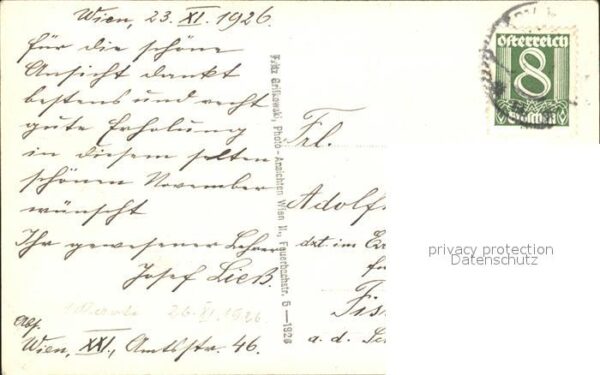 Wien, 23. XI. 1926.
für die schöne
Ansicht dankt
bestens und recht
gute Erholung
in diesem selten
schönen November
wünscht
Ihr gewesener Lehrer
Josef Ließ.
26. XI. 1926.
Abs.
Wien, XXI., Amtsstr. 46.
Photo-Ansichten Wien II., Feuerbachstr. 5 — 1926
Österreich
8
Groschen
Frl.
Adolf
dzt. im
privacy protection
Datenschutz
a. d.